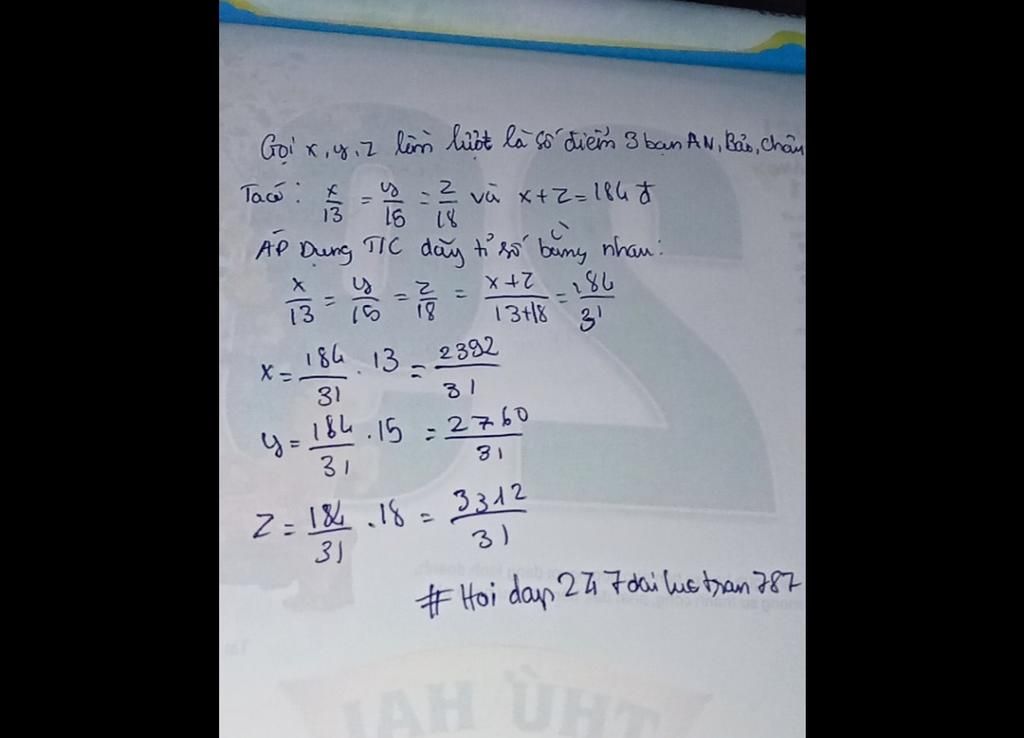 Gọi x, y, z lần lượt là số điểm 3 bạn AN, Bảo, Châu
Ta có: x/13 = y/15 = z/18 và x+z = 184 đ
ÁP Dụng T/C dãy tỉ số bằng nhau:
x/13 = y/15 = z/18 = x+z/13+18 = 184/31
x = 184/31 . 13 = 2392/31
y = 184/31 . 15 = 2760/31
z = 184/31 . 18 = 3312/31
# Hoi dap 247 dai luc tran 787
THỨ HAI